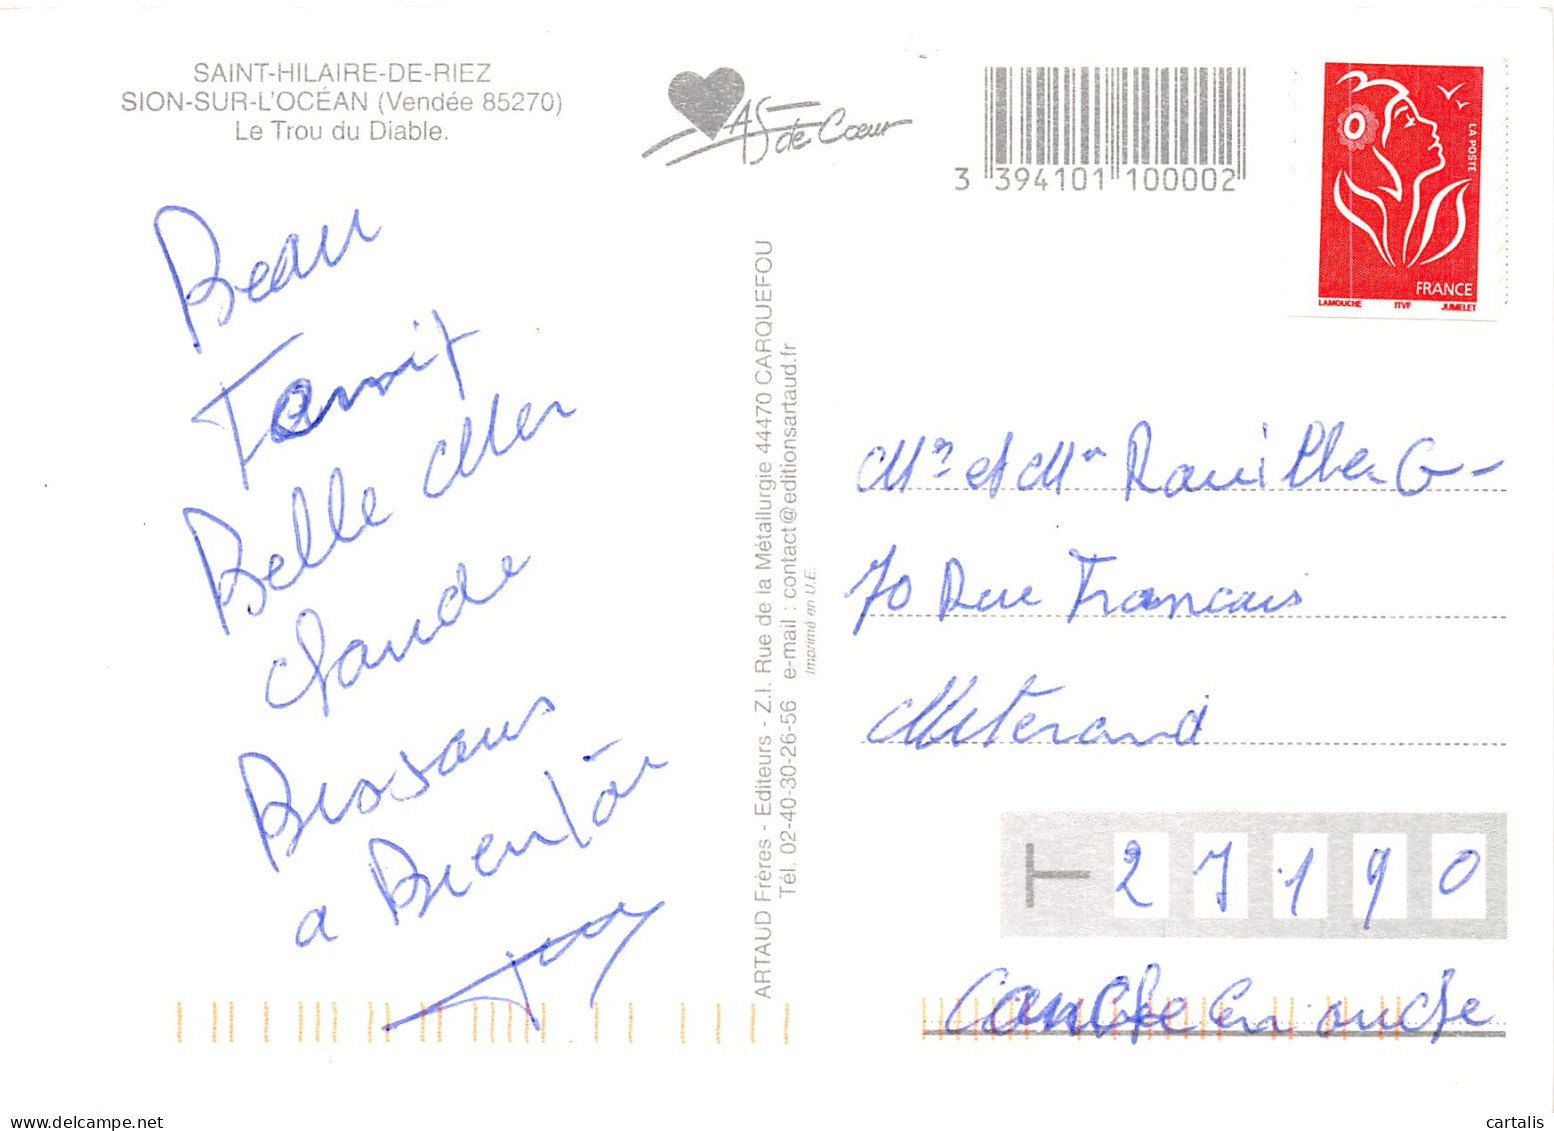 SAINT-HILAIRE-DE-RIEZ
SION-SUR-L'OCÉAN (Vendée 85270)
Le Trou du Diable.
AS de Cœur
3 394101 100002
LA POSTE
FRANCE
LAMOUCHE ITVF JUMELET
Beau
Belle Mer
Claude
a Bientôt
ARTAUD Frères - Editeurs - Z.I. Rue de la Métallurgie 44470 CARQUEFOU
Tél. 02-40-30-26-56 e-mail : contact@editionsartaud.fr
Imprimé en U.E.
Mr et Mm
70 Rue Francais
Miterand
27190
Conche en ouche
cartalis